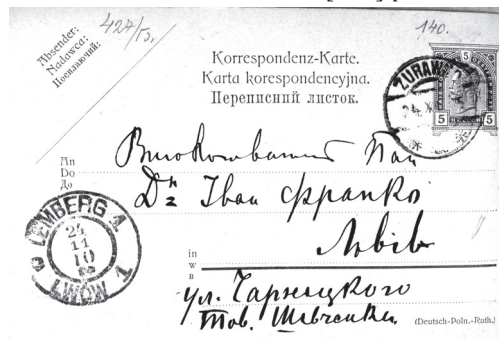 427/13.
140.
Absender:
Nadawca:
Посилаючий:
Korrespondenz-Karte.
Karta korespondencyjna.
Переписний листок.
5 5
5 5
ŻURAWNO
24. X
An
Do
До
Високоповажний Пан
Др Іван Франко
Львів
in
w
в
ул. Чарнецкого
Тов. Шевченка
(Deutsch-Poln.-Ruth.)
LEMBERG 1.
24
11
10
LWÓW 1